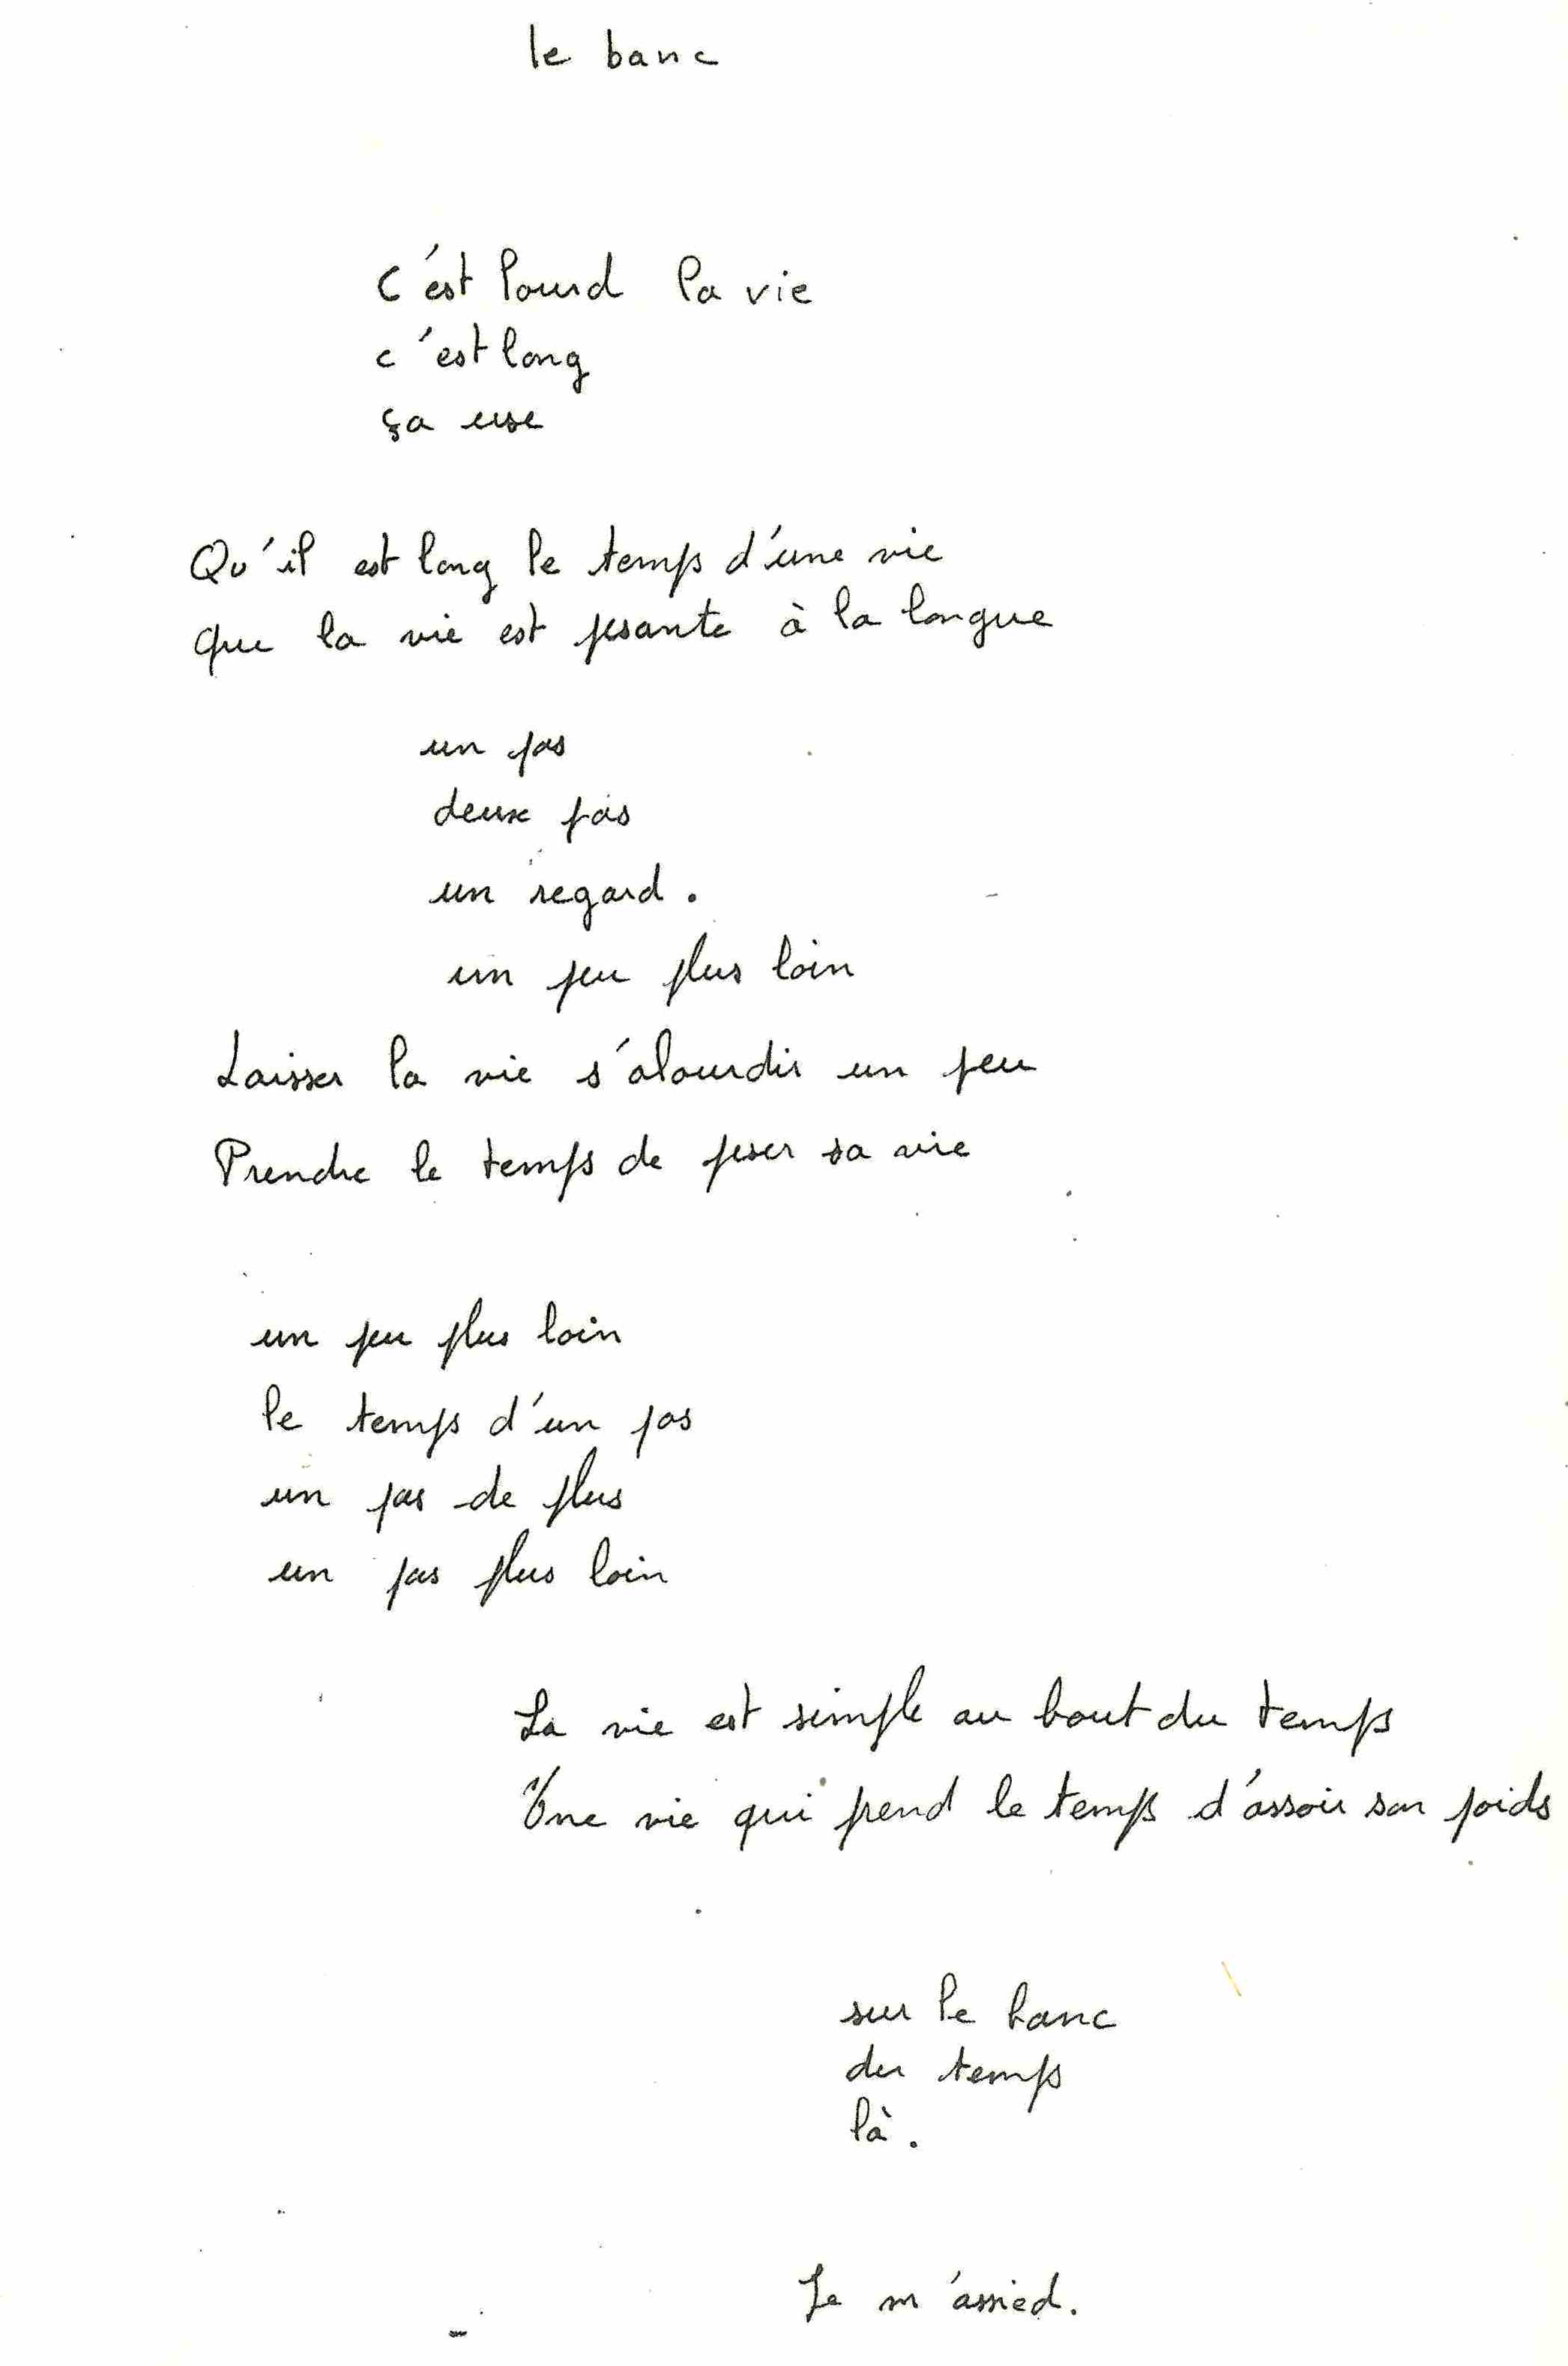 le banc
C'est lourd la vie
c'est long
ça use
Qu'il est long le temps d'une vie
que la vie est pesante à la longue
un pas
deux pas
un regard.
un peu plus loin
Laisser la vie s'alourdir un peu
Prendre le temps de peser sa vie
un peu plus loin
le temps d'un pas
un pas de plus
un pas plus loin
La vie est simple au bout du temps
Une vie qui prend le temps d'assoir son poids
sur le banc
du temps
là.
Je m'assied.